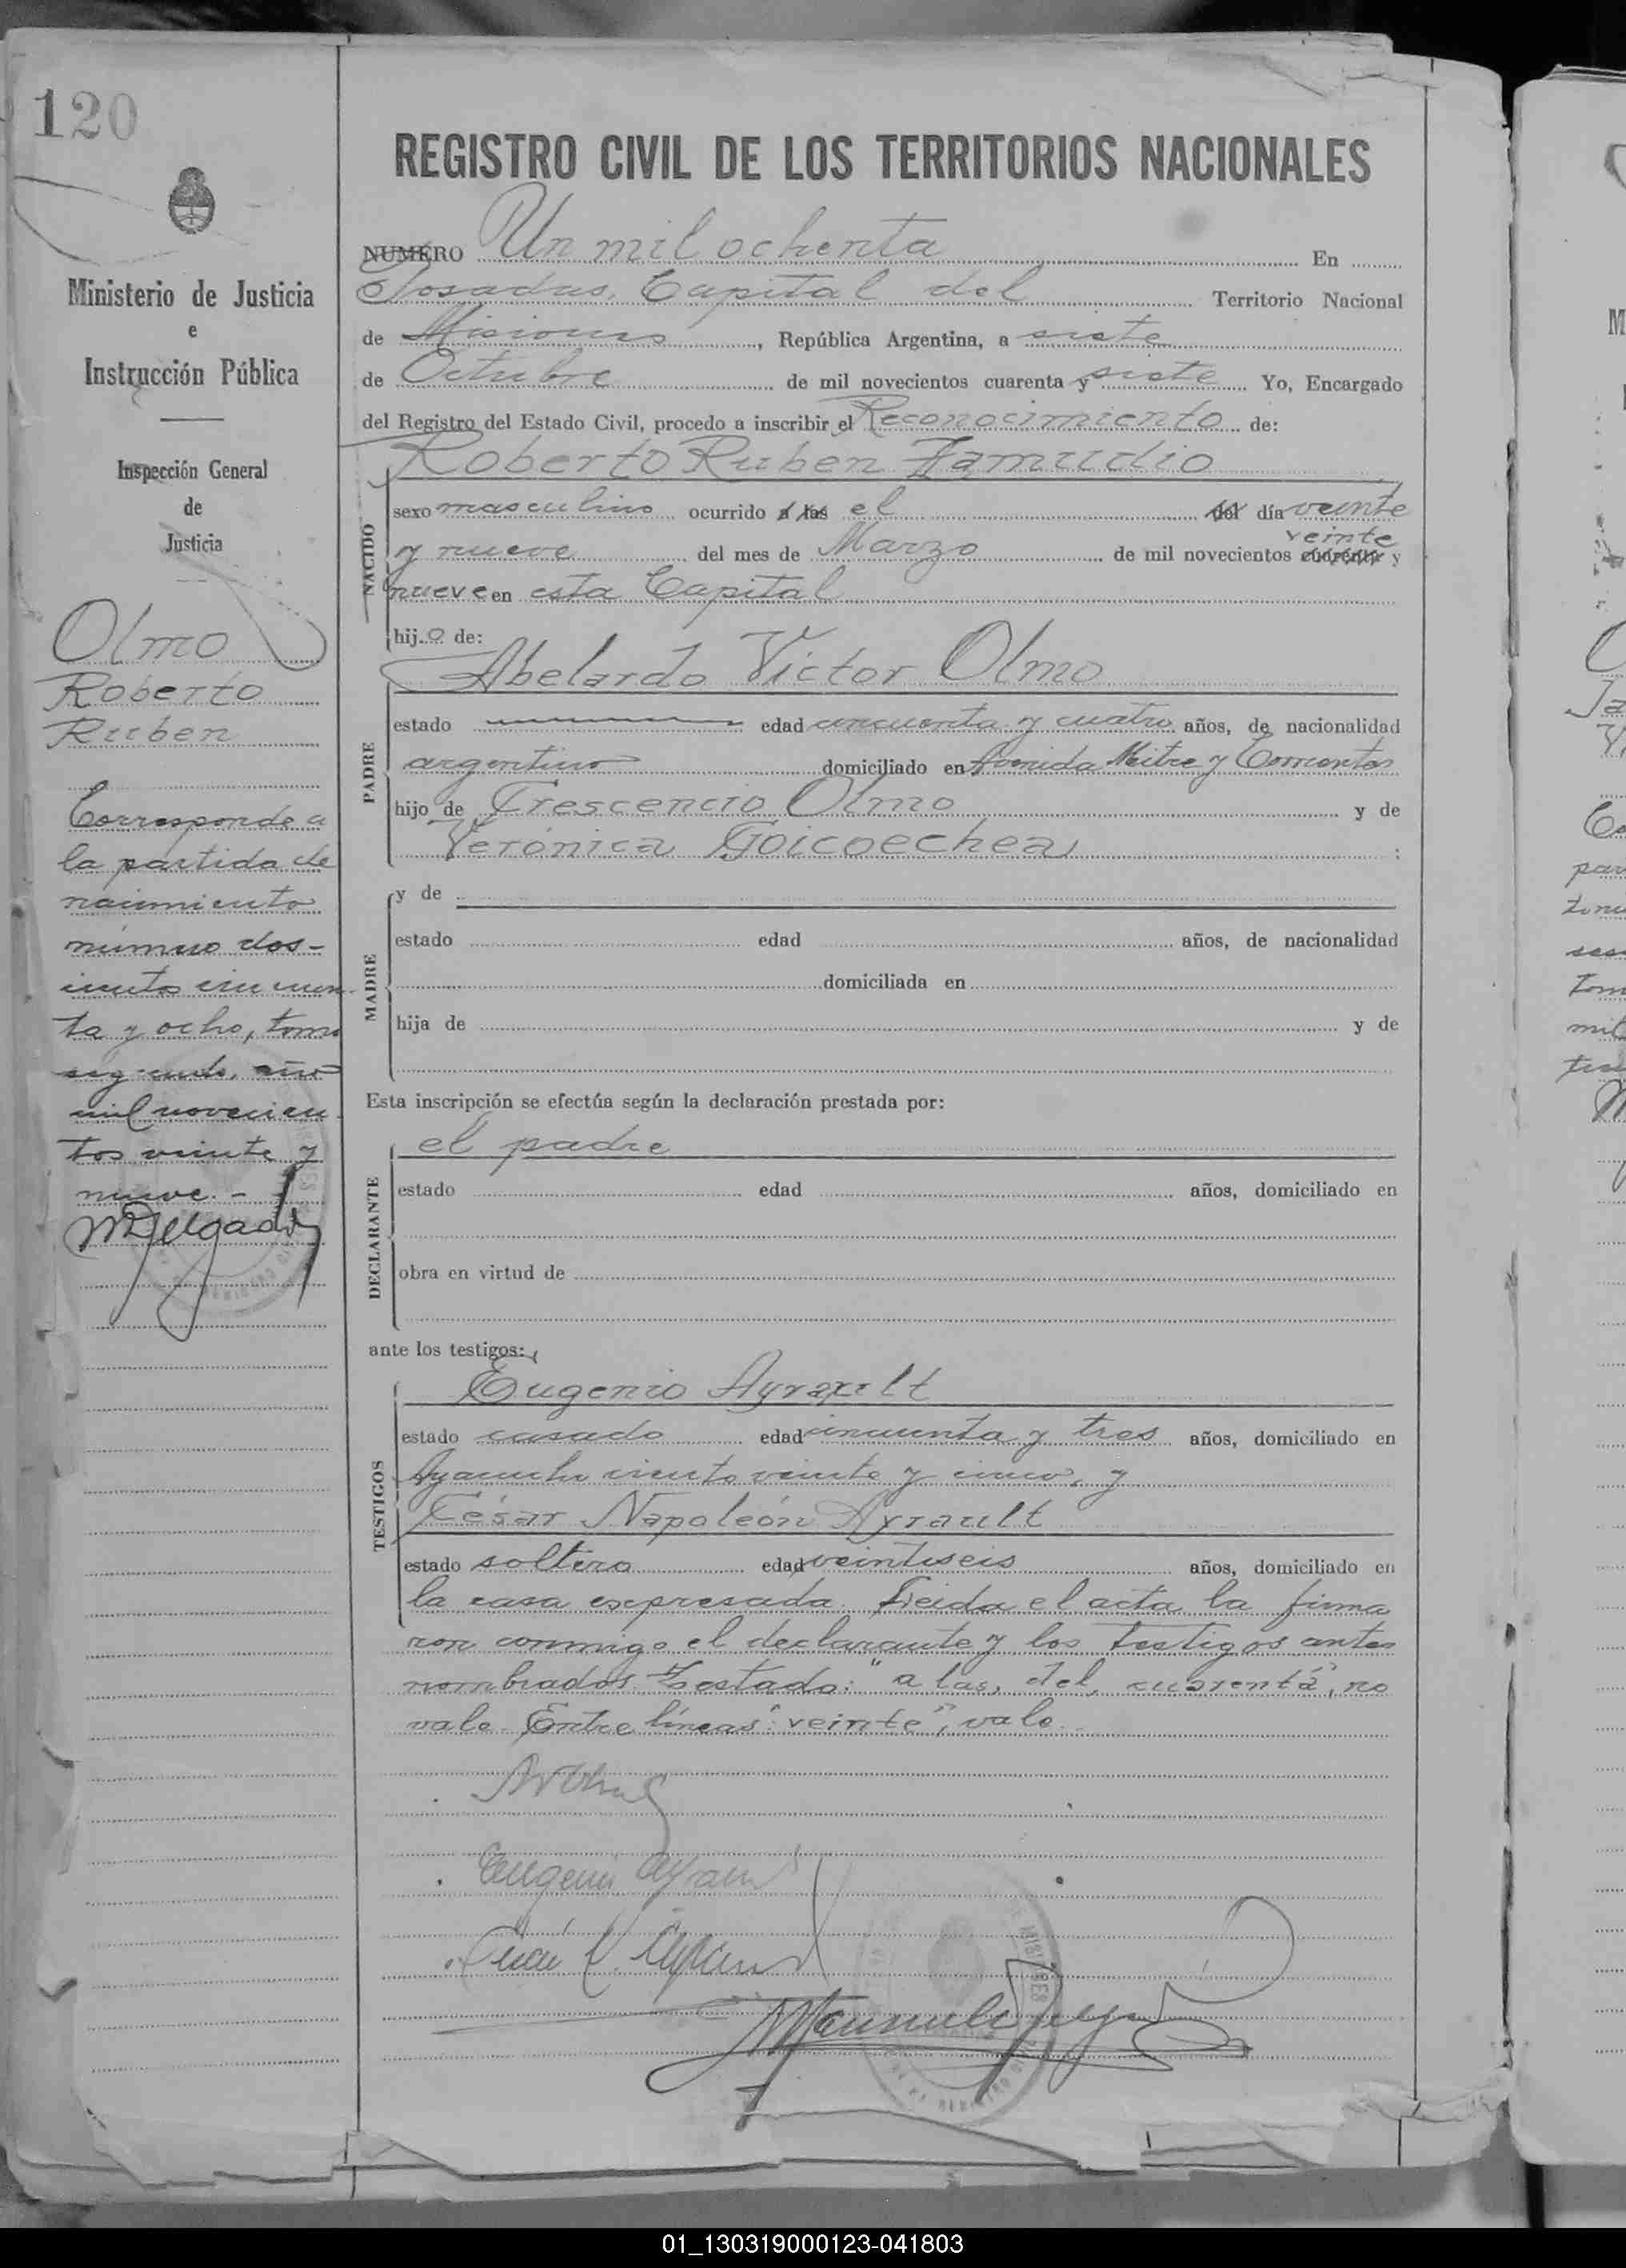 120
Ministerio de Justicia
e
Instrucción Pública
Inspección General
de
Justicia
Olmo
Roberto
Ruben
Corresponde a
la partida de
nacimiento
número dos-
cientos cincuen-
ta y ocho, tomo
segundo, año
mil novecien-
tos veinte y
nueve.-
MDelgado
REGISTRO CIVIL DE LOS TERRITORIOS NACIONALES
NUMERO Un mil ochenta En
Posadas, Capital del Territorio Nacional
de Misiones, República Argentina, a siete
de Octubre de mil novecientos cuarenta y siete Yo, Encargado
del Registro del Estado Civil, procedo a inscribir el Reconocimiento de:
Roberto Ruben Zamudio
NACIDO
sexo masculino ocurrido a las el del día veinte
veinte
y nueve del mes de Marzo de mil novecientos cuarenta y
nueve en esta Capital
hijo de:
Abelardo Victor Olmo
PADRE
estado edad cincuenta y cuatro años, de nacionalidad
argentino domiciliado en Avenida Mitre y Corrientes
hijo de Crescencio Olmo y de
Verónica Goicoechea :
MADRE
y de
estado edad años, de nacionalidad
domiciliada en
hija de y de
Esta inscripción se efectúa según la declaración prestada por:
el padre
DECLARANTE
estado edad años, domiciliado en
obra en virtud de
ante los testigos:
TESTIGOS
Eugenio Ayrault
estado casado edad cincuenta y tres años, domiciliado en
Ayacucho ciento veinte y cinco, y
César Napoleón Ayrault
estado soltero edad veintiseis años, domiciliado en
la casa expresada. Leida el acta la firma
ron conmigo el declarante y los testigos antes
nombrados. Testado: "a las, del, cuarenta", no
vale. Entre líneas: "veinte", vale.
AVOlmo
Eugenio Ayrault
César N. Ayrault
Manuel Delgado
01_130319000123-041803